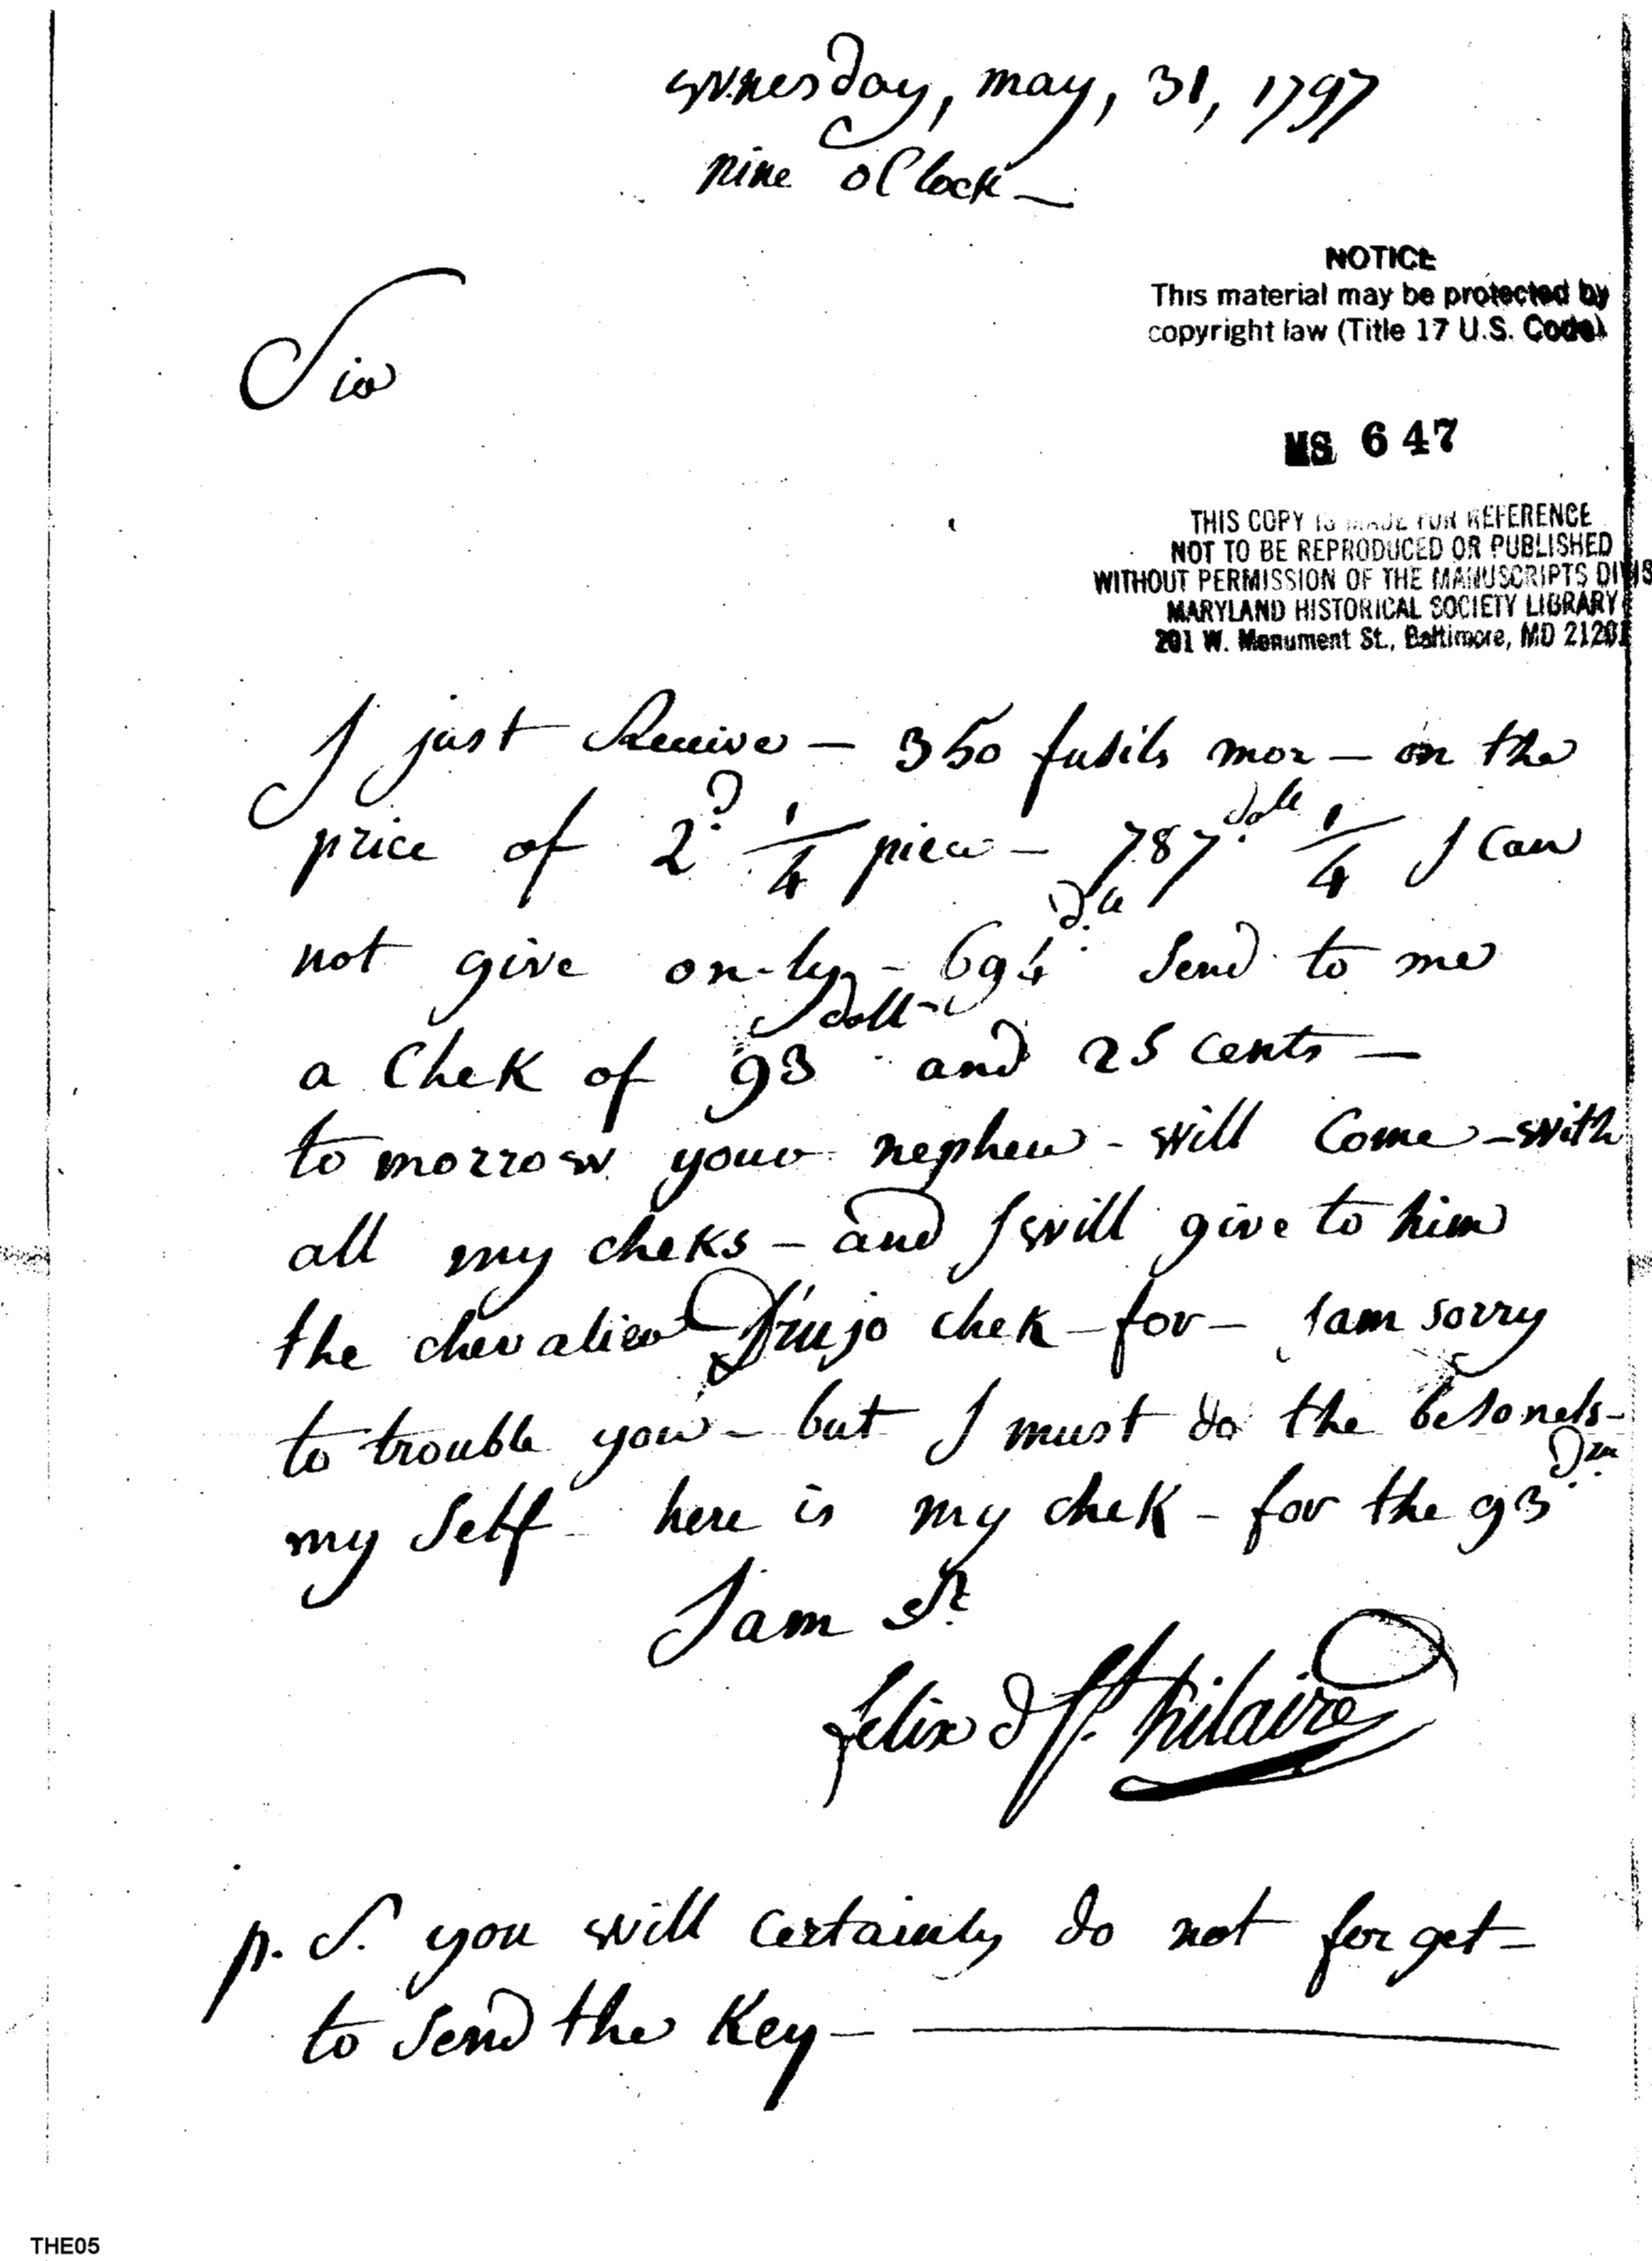 Wnesday, may, 31, 1797
nine oClock —
NOTICE
This material may be protected by
copyright law (Title 17 U.S. Code)
Sir
MS 647
THIS COPY IS MADE FOR REFERENCE
NOT TO BE REPRODUCED OR PUBLISHED
WITHOUT PERMISSION OF THE MANUSCRIPTS DIVIS
MARYLAND HISTORICAL SOCIETY LIBRARY
201 W. Monument St., Baltimore, MD 21201
I just Receive — 350 fusils mor — on the
price of 2 d. 1/4 piece — 787 doll. 1/4 I can
not give on-ly — 694 d. Send to me
a Chek of 93 doll and 25 cents —
to morrow your nephew - will Come - with
all my cheks — and I will give to him
the chevalier D'irujo chek — for — I am sorry
to trouble you — but I must do the
my Self here is my chek — for the 93
I am Sr.
felix d St. hilaire
p. S. you will certainly do not for get —
to Send the Key —
THE05